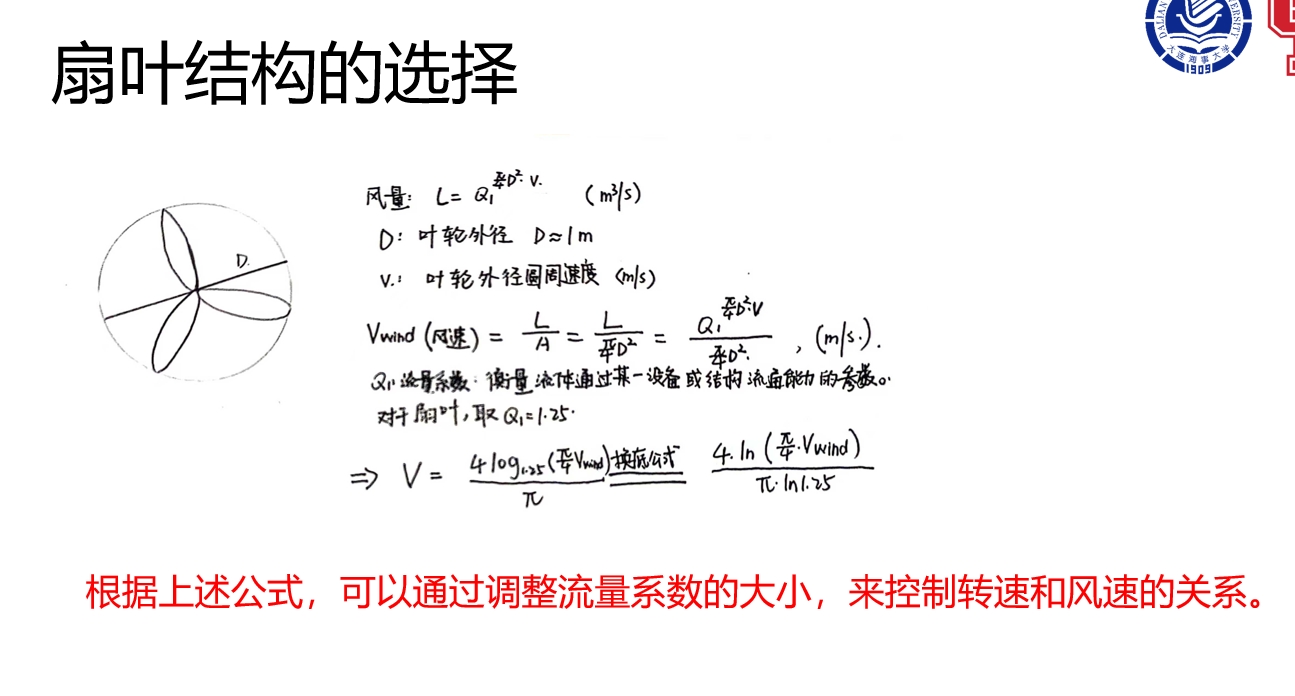 扇叶结构的选择
DALIAN UNIVERSITY
大连海事大学
1909
风量: L= Q₁^(π/4 D²·V.) (m³/s)
D.
D: 叶轮外径 D≈1m
V.: 叶轮外径圆周速度 (m/s)
Vwind (风速) = L/A = L/(π/4 D²) = Q₁^(π/4 D²·V)/(π/4 D².) , (m/s.).
Q₁: 流量系数: 衡量流体通过某一设备或结构流通能力的参数。
对于扇叶,取Q₁=1.25.
⇒ V = 4log₁.₂₅(π/4 Vwind)/π 换底公式 4.ln(π/4·Vwind)/(π·ln1.25)
根据上述公式，可以通过调整流量系数的大小，来控制转速和风速的关系。